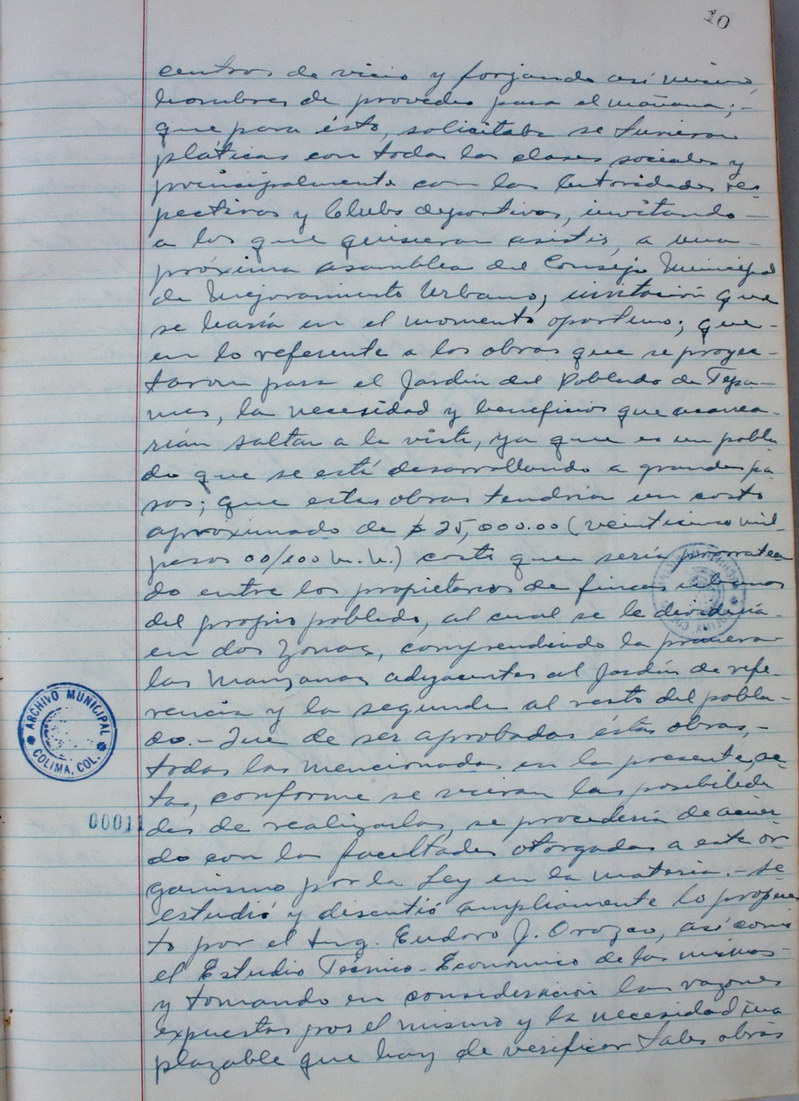 10
centros de vicio y forjando asi mismo
hombres de provecho para el mañana; -
que para ésto, solicitaba se tuvieran
pláticas con todas las clases sociales y
principalmente con las Autoridades res-
pectivas y Clubs deportivos, invitando -
a los que quisieran asistir, a una -
próxima asamblea del Consejo Municipal
de Mejoramiento Urbano, invitación que
se haría en el momento oportuno; que -
en lo referente a las obras que se proyec-
taron para el Jardín del Poblado de Tepa-
mes, la necesidad y beneficios que acarrea-
rían saltan a la vista, ya que es un pobla-
do que se está desarrollando a grandes pa-
sos; que estas obras tendrían un costo
aproximado de $25,000.00 (veinticinco mil
pesos 00/100 m.n.) costo que sería prorratea-
do entre los propietarios de fincas urbanas
del propio poblado, al cual se le dividiría
en dos zonas, comprendiendo la primera
las manzanas adyacentes al Jardín de refe-
rencia y la segunda al resto del pobla-
do.- Que de ser aprobadas éstas obras, -
todas las mencionadas en la presente ac-
ta, conforme se vieran las posibilida-
des de realizarlas, se procedería de acuer-
do con las facultades otorgadas a este or-
ganismo por la Ley en la materia.- Se
estudió y discutió ampliamente lo propues-
to por el Ing. Eudoro J. Orozco, así como
el Estudio Técnico-Económico de las mismas -
y tomando en consideración las razones
expuestas por el mismo y la necesidad ina-
plazable que hay de verificar tales obras
ARCHIVO MUNICIPAL
COLIMA, COL.
00011